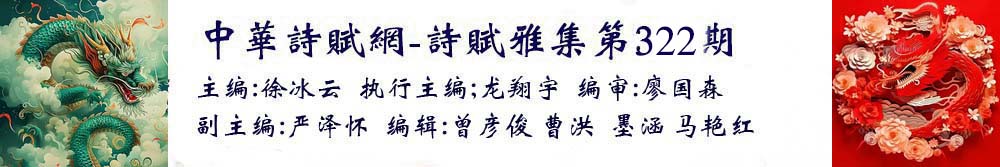 中華詩賦網-詩賦雅集第322期
主编:徐冰云 执行主编;龙翔宇 编审:廖国森
副主编:严泽怀 编辑:曾彦俊 曹洪 墨涵 马艳红